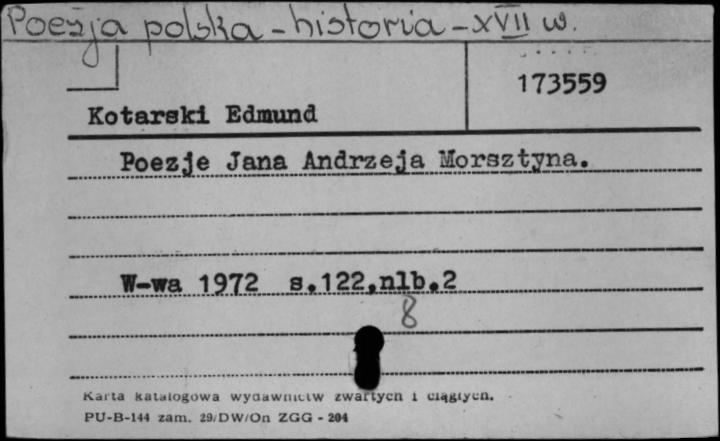 Poezja polska - historia - XVII w.
173559
Kotarski Edmund
Poezje Jana Andrzeja Morsztyna.
W-wa 1972 s.122,nlb.2
8
Karta katalogowa wydawnictw zwartych i ciągłych.
PU-B-144 zam. 29/DW/On ZGG - 204